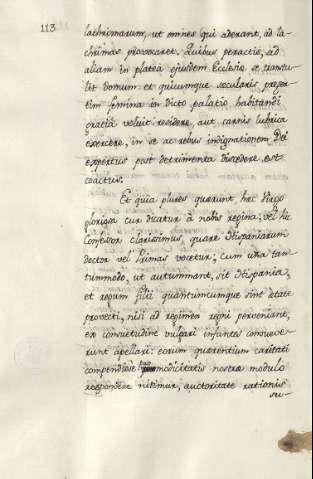 113
lachrimarum, ut omnes qui aderant, ad la-
chrimas provocaret. Quibus peractis, ad
aliam in platea ejusdem Ecclesiæ se transtu-
lit domum et quicumque secularis præser-
tim femina in dicto palatio habitandi
gratia veluit residere, aut carnis lubrica
exercere, in se ac rebus indignationem Dei
expertus post detrimenta discedere est
coactus.
Et quia plures quærunt, hæc Virgo
gloriosa cur dicatur à nobis regina; vel hic
Confessor clarissimus, quare Hispaniarum
doctor vel Primas vocetur; cum una tan-
tummodo, ut autummant, sit Hispania,
et regum filii quantumcumque sint ætate
provecti, nisi ad regimen regni perveniant,
ex consuetudine vulgari infantes consueve-
runt apellari: eorum quærentium caritati
compendiose pro modicitatis nostræ modulo
respondere nitimur, auctoritate rationis
seu-